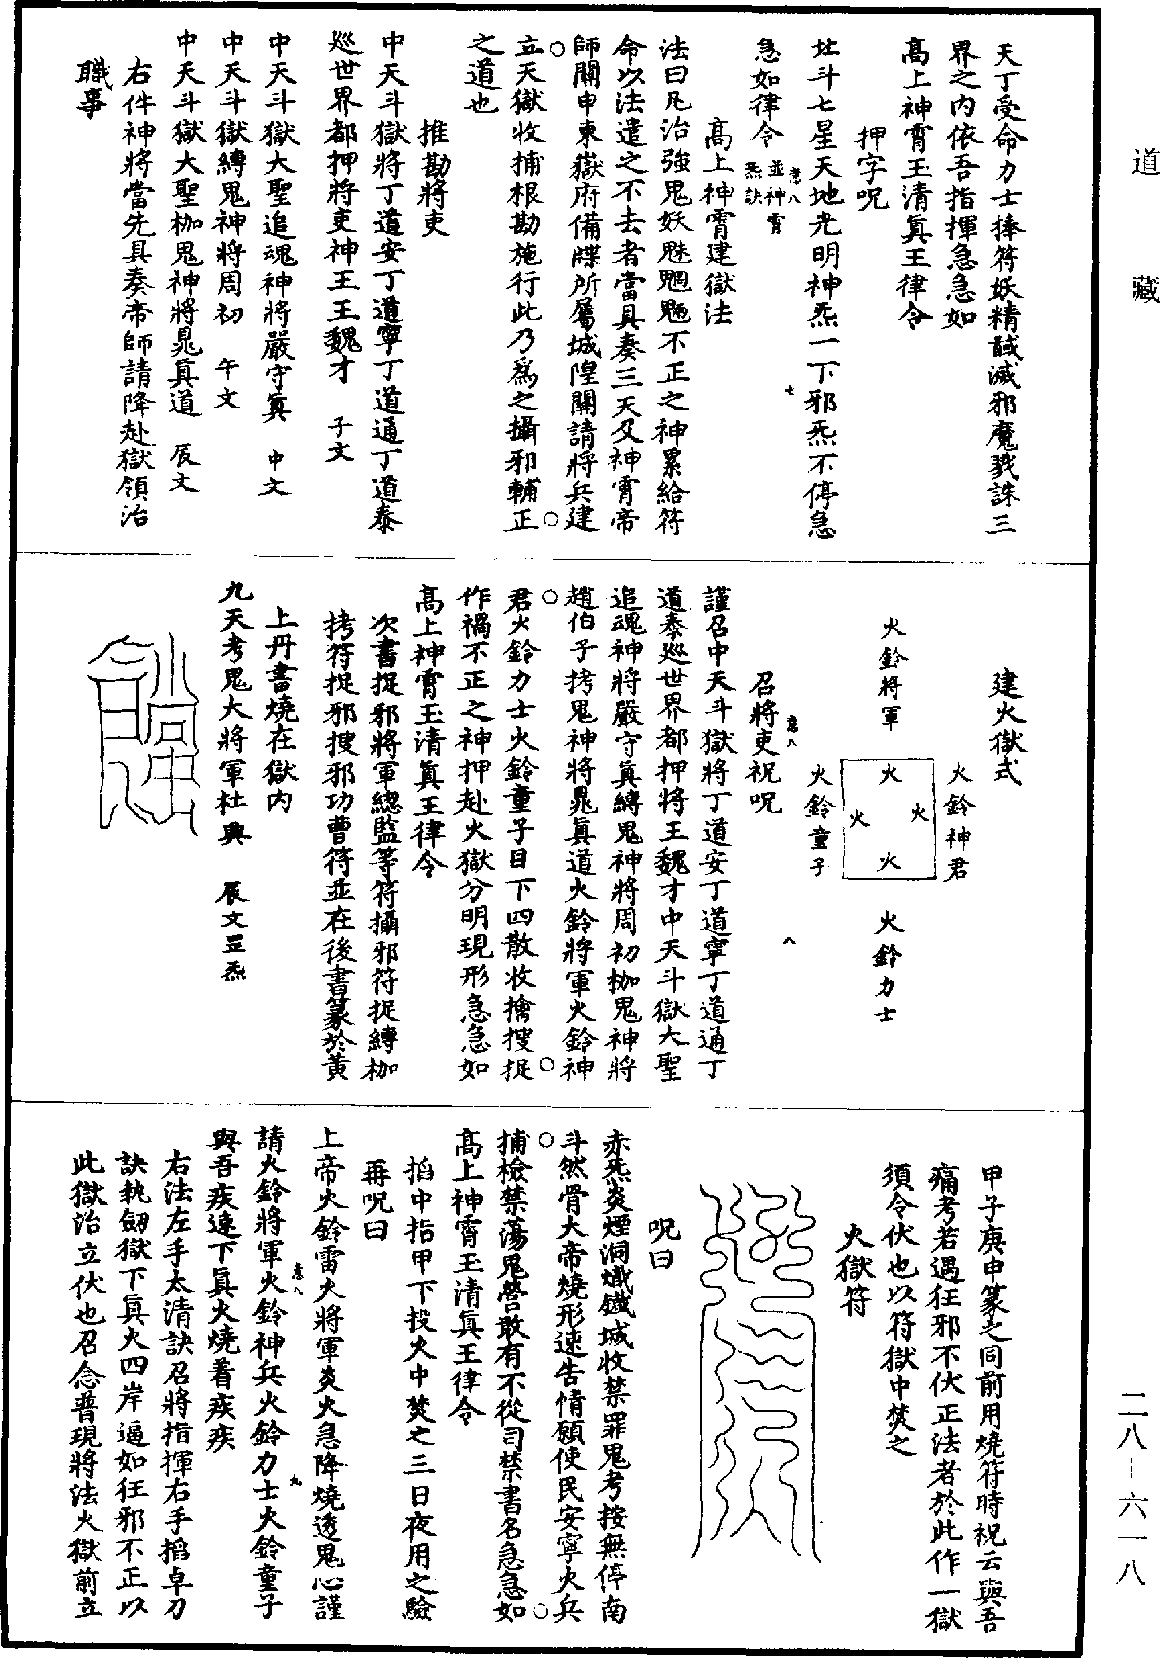 道藏
天丁受命力士捧符妖精馘滅邪魔戮誅三
界之內依吾指揮急急如
高上神霄玉清眞王律令
押字呪
北斗七星天地光明神炁一下邪炁不停急
急如律令並神霄炁訣
高上神霄建獄法
法曰凡治強鬼妖魅魍魎不正之神累給符
命以法遣之不去者當具奏三天及神霄帝
師關申東嶽府備牒所屬城隍關請將兵建
立天獄收捕根勘施行此乃爲之攝邪輔正
之道也
推勘將吏
中天斗獄將丁道安丁道寧丁道通丁道泰
巡世界都押將吏神王王魏才 子文
中天斗獄大聖追魂神將嚴守眞 申文
中天斗獄縛鬼神將周初 午文
中天斗獄大聖枷鬼神將晁眞道 辰文
右件神將當先具奏帝師請降赴獄領治
職事
建火獄式
火鈴神君
火鈴將軍
火
火
火
火
火鈴力士
火鈴童子
召將吏祝呪
謹召中天斗獄將丁道安丁道寧丁道通丁
道泰巡世界都押將王魏才中天斗獄大聖
追魂神將嚴守眞縛鬼神將周初枷鬼神將
趙伯子拷鬼神將晁眞道火鈴將軍火鈴神
君火鈴力士火鈴童子目下四散收擒搜捉
作禍不正之神押赴火獄分明現形急急如
高上神霄玉清眞王律令
次書捉邪將軍總監等符攝邪符捉縛枷
拷符捉邪搜邪功曹符並在後書篆於黃
上丹書燒在獄內
九天考鬼大將軍杜興 辰文罡炁
甲子庚申篆之同前用燒符時祝云與吾
痛考若遇狂邪不伏正法者於此作一獄
須令伏也以符獄中焚之
火獄符
呪曰
赤炁炎煙洞熾鐵城收禁罪鬼考按無停南
斗然骨大帝燒形速告情願使民安寧火兵
捕檢禁蕩鬼營敢有不從司禁書名急急如
高上神霄玉清眞王律令
掐中指甲下投火中焚之三日夜用之驗
再呪曰
上帝火鈴雷火將軍炎火急降燒透鬼心謹
請火鈴將軍火鈴神兵火鈴力士火鈴童子
與吾疾速下眞火燒着疾疾
右法左手太清訣召將指揮右手掐卓刀
訣執劒獄下眞火四岸逼如狂邪不正以
此獄治立伏也召念普現將法火獄前立
二八－六一八